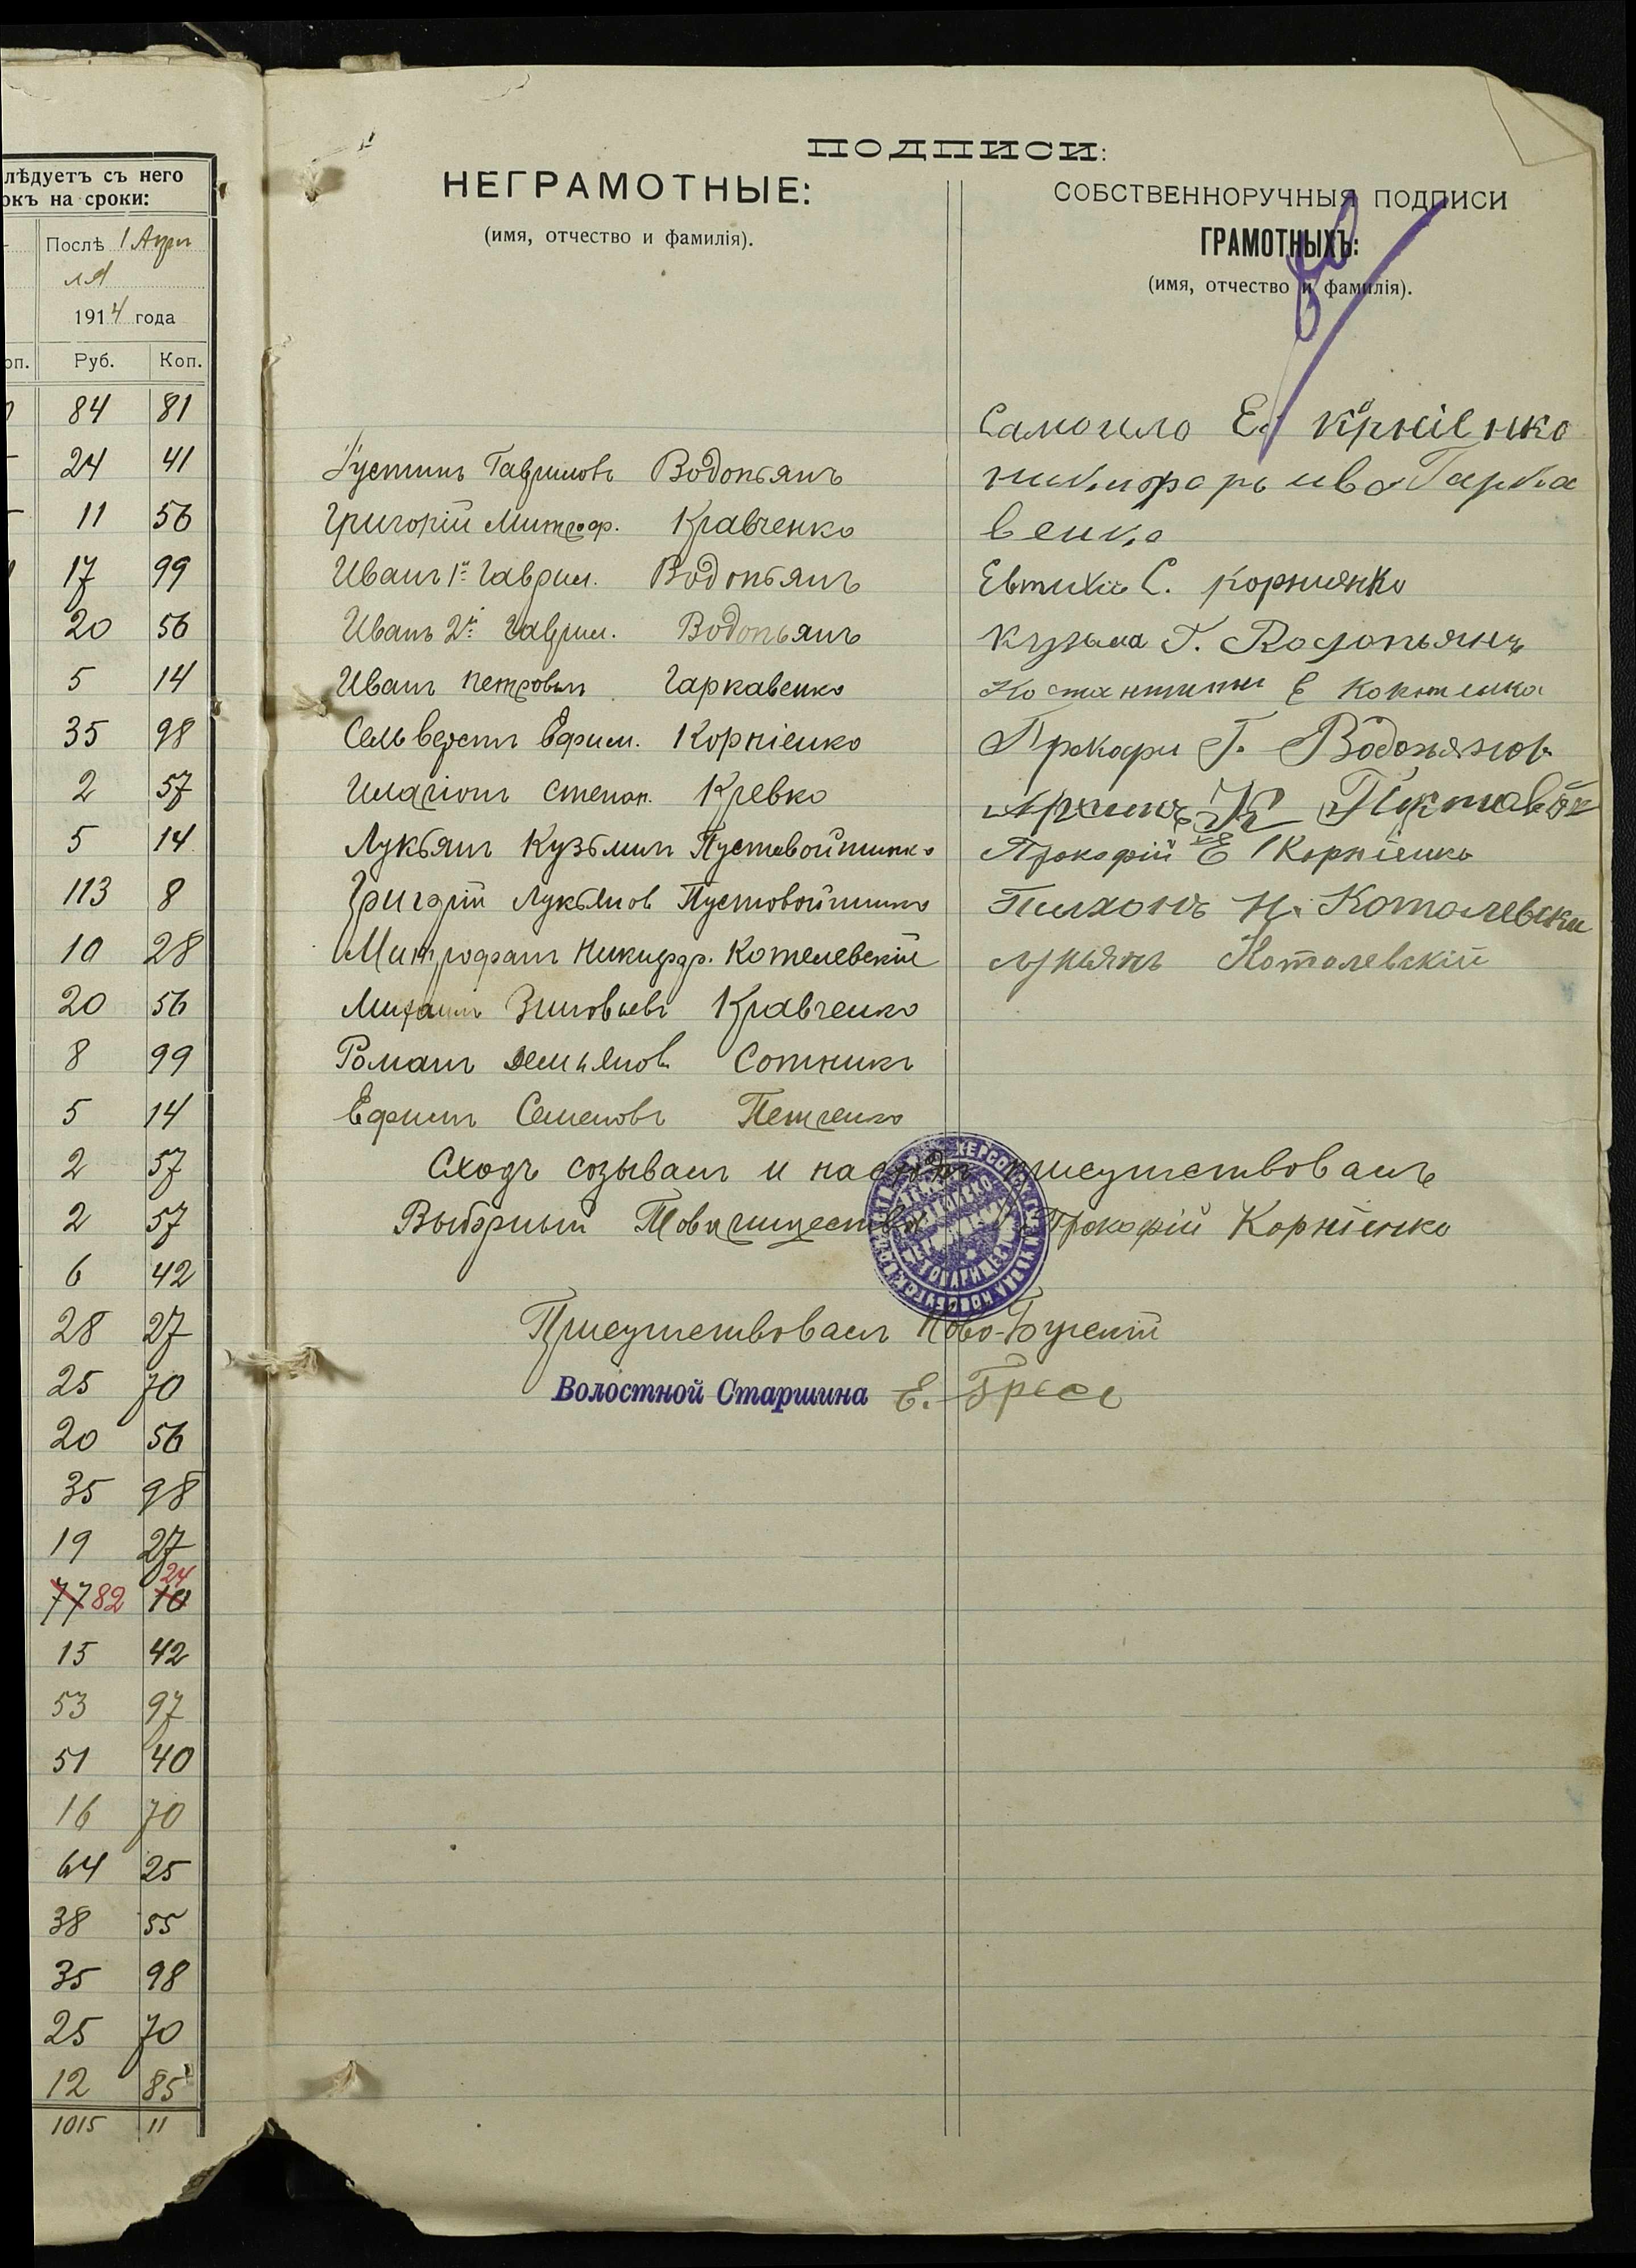 лѣдуетъ съ него
окъ на сроки:
Послѣ 1 Апрѣ
ля
1914 года
оп. Руб. Коп.
84 81
24 41
11 56
17 99
20 56
5 14
35 98
2 57
5 14
113 8
10 28
20 56
8 99
5 14
2 57
2 57
6 42
28 27
25 70
20 56
35 98
19 27
24
77 82 10
15 42
53 97
51 40
16 70
64 25
38 55
35 98
25 70
12 85
1015 11
ПОДПИСИ:
НЕГРАМОТНЫЕ:
(имя, отчество и фамилія).
Устинъ Гавриловъ Водопьянъ
Григорій Митроф. Кравченко
Иванъ 1й Гаврил. Водопьянъ
Иванъ 2й Гаврил. Водопьянъ
Иванъ Петровъ Гаркавенко
Сельверстъ Ефим. Корніенко
Иларіонъ Степан. Кревко
Лукьянъ Кузьминъ Пустовойтенко
Григорій Лукьянов Пустовойтенко
Митрофанъ Никифор. Котелевскій
Михаилъ Зиновьевъ Кравченко
Романъ Демьянов Сотникъ
Ефимъ Семеновъ Петченко
СОБСТВЕННОРУЧНЫЯ ПОДПИСИ
ГРАМОТНЫХЪ:
(имя, отчество и фамилія).
Самоило Е. Корніенко
Никифоръ ива Гарка
венко
Евтихій С. Корниенко
Кузьма Г. Водопьянъ
Костантинъ Е
Прокофи Г. Водопьянов
Прокофій Е Корніенко
Тихонъ Н. Котолевски
Лукьянъ Котолевскій
Сходъ созывалъ и на сходѣ присутствовалъ
Выборный Товарищества Прокофій Корніенко
Присутствовалъ Ново-Бугскій
Волостной Старшина Е.